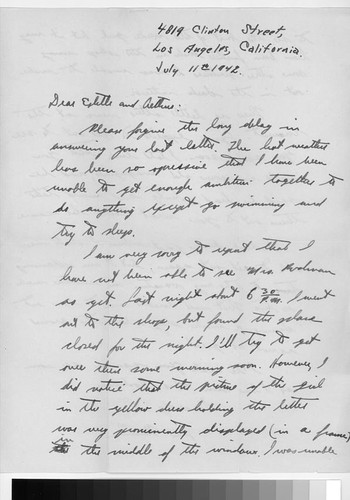 4819 Clinton Street,
Los Angeles, California.
July 11th 1942.
Dear Estelle and Arthur:
Please forgive the long delay in
answering your last letter. The hot weather
has been so opressive that I have been
unable to get enough ambition together to
do anything except go swimming and
try to sleep.
I am very sorry to report that I
have not been able to see Mrs.
as yet. Last night about 6 30 P.M. I went
out to the shop, but found the place
closed for the night. I'll try to get
over there some morning soon. However, I
did notice that the picture of the girl
in the yellow dress holding the letter
was very prominently displayed (in a frame)
in the middle of the window. I was unable